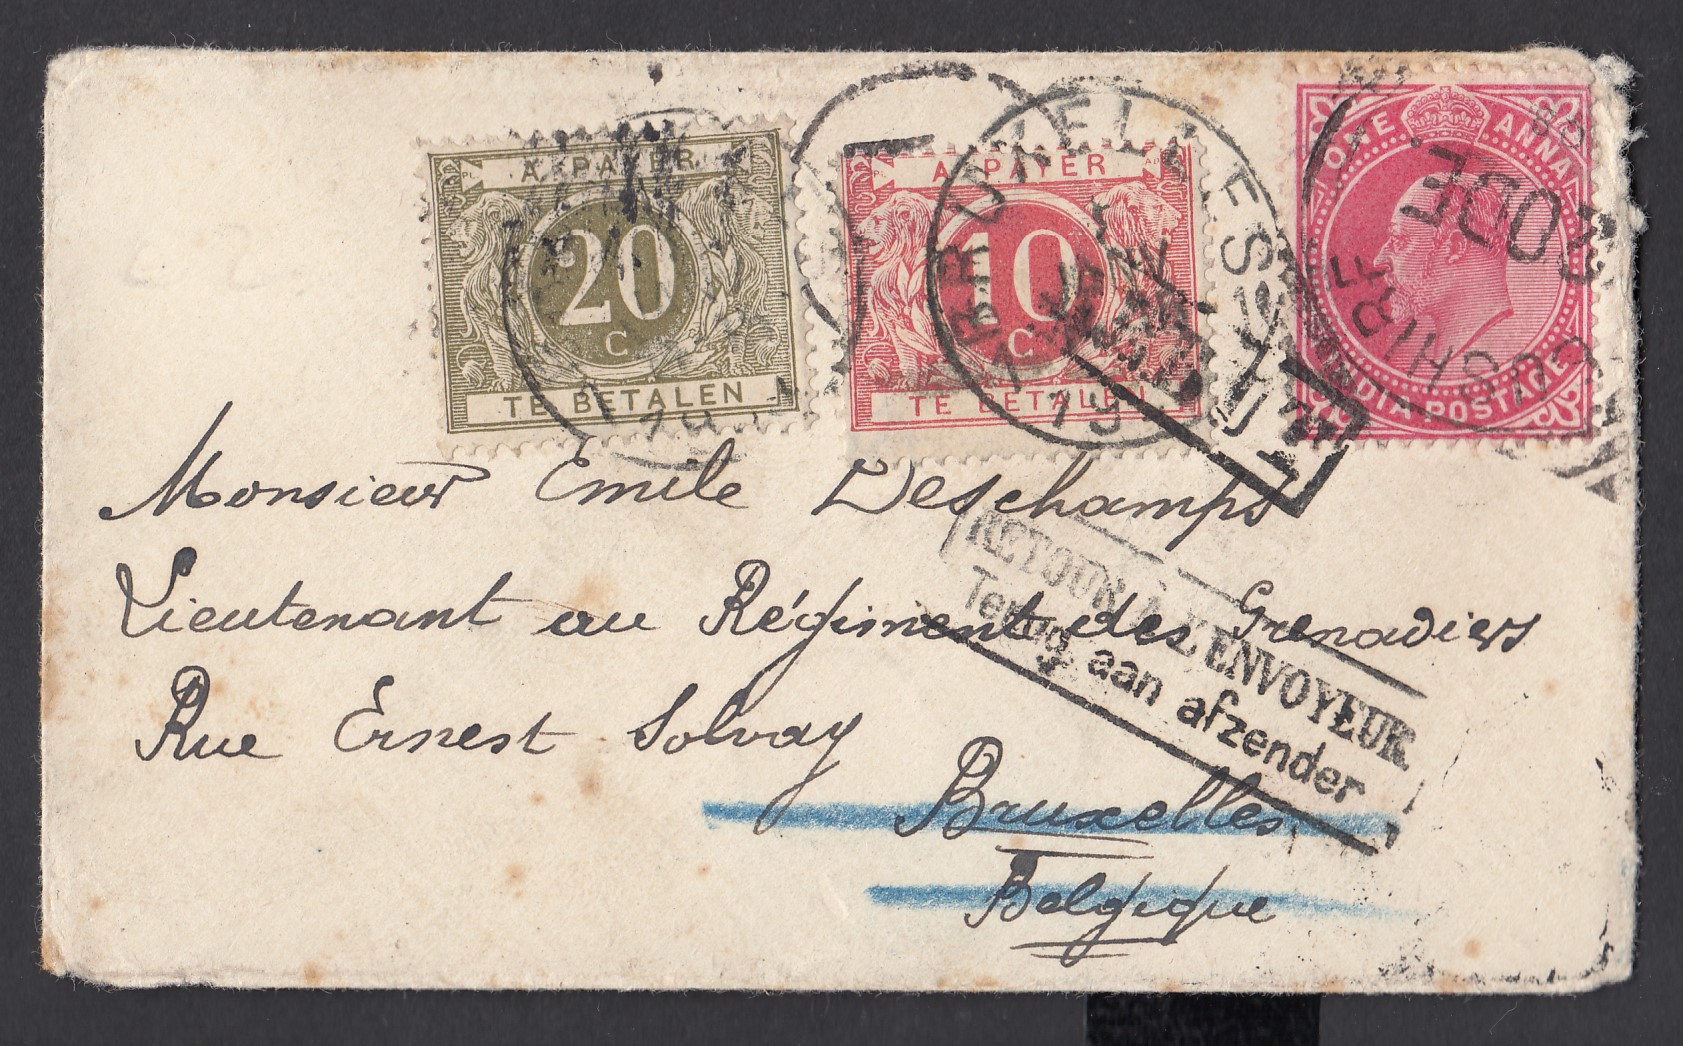 A PAYER
20
C
TE BETALEN
A PAYER
10
C
TE BETALEN
BRUXELLES
ONE ANNA
INDIA POSTAGE
BUSHIRE
Monsieur Emile Deschamps
Lieutenant au Régiment des Grenadiers
Rue Ernest Solvay
Bruxelles
Belgique
RETOUR A L'ENVOYEUR
Terug aan afzender